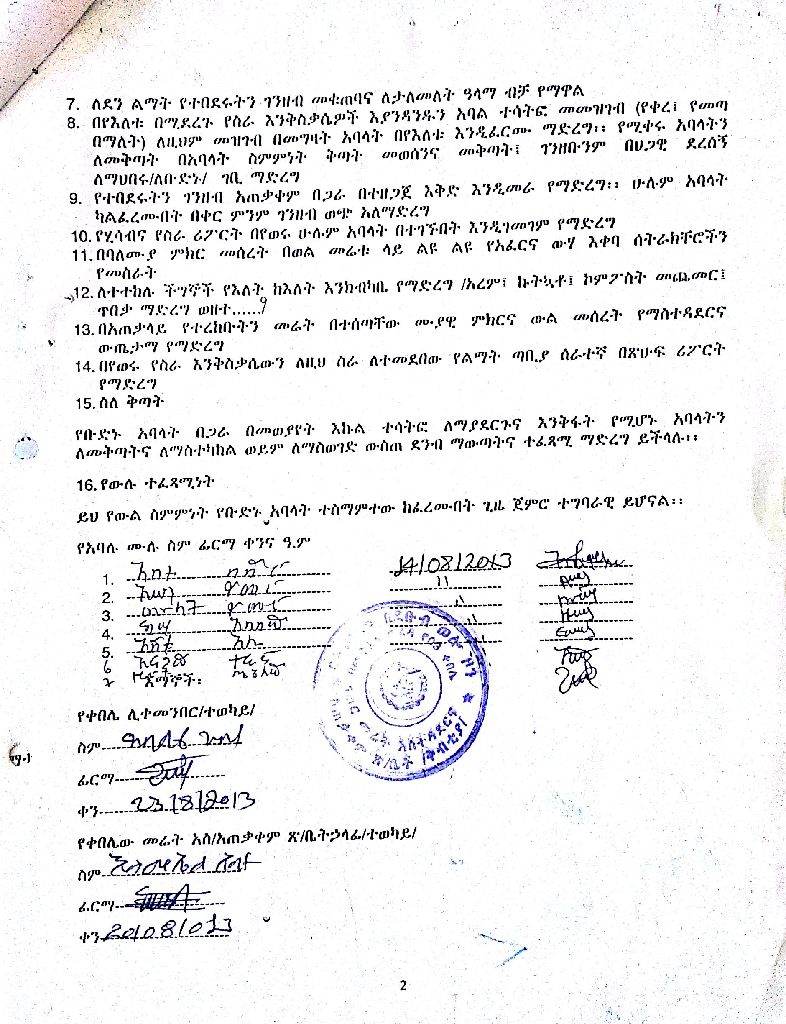 7. ለደን ልማት የተበደሩትን ገንዘብ መቁጠባና ለታለመለት ዓላማ ብቻ የማዋል
8. በየእለቱ በሚደረጉ የስራ እንቅስቃሴዎች እያንዳንዱን አባል ተሳትፎ መመዝገብ (የቀረ፣ የመጣ
በማለት) ለዚህም መዝገብ በመግዛት አባላት በየእለቱ እንዲፈርሙ ማድረግ፡፡ የሚቀሩ አባላትን
ለመቅጣት በአባላት ስምምነት ቅጣት መወሰንና መቅጣት፣ ገንዘቡንም በህጋዊ ደረሰኝ
ለማህበሩ/ለቡድኑ/ ገቢ ማድረግ
9. የተበደሩትን ገንዘብ አጠቃቀም በጋራ በተዘጋጀ እቅድ እንዲመራ የማድረግ፡፡ ሁሉም አባላት
ካልፈረሙበት በቀር ምንም ገንዘብ ወጭ አለማድረግ
10. የሂሳብና የስራ ሪፖርት በየወሩ ሁሉም አባላት በተገኙበት እንዲገመገም የማድረግ
11. በባለሙያ ምክር መሰረት በወል መሬቱ ላይ ልዩ ልዩ የአፈርና ውሃ እቀባ ስትራክቸሮችን
የመስራት
12. ለተተከሉ ችግኞች የእለት ከእለት እንክብካቤ የማድረግ /አረም፣ ኩትኳቶ፣ ኮምፖስት መጨመር፣
ጥበቃ ማድረግ ወዘተ....../
13. በአጠቃላይ የተረከቡትን መሬት በተሰጣቸው ሙያዊ ምክርና ውል መሰረት የማስተዳደርና
ውጤታማ የማድረግ
14. በየወሩ የስራ እንቅስቃሴውን ለዚህ ስራ ለተመደበው የልማት ጣቢያ ሰራተኛ በጽሁፍ ሪፖርት
የማድረግ
15. ስለ ቅጣት
የቡድኑ አባላት በጋራ በመወያየት እኩል ተሳትፎ ለማያደርጉና እንቅፋት የሚሆኑ አባላትን
ለመቅጣትና ለማስተካከል ወይም ለማስወገድ ውስጠ ደንብ ማውጣትና ተፈጻሚ ማድረግ ይችላሉ፡፡
16. የውሉ ተፈጻሚነት
ይህ የውል ስምምነት የቡድኑ አባላት ተስማምተው ከፈረሙበት ጊዜ ጀምሮ ተግባራዊ ይሆናል፡፡
የአባሉ ሙሉ ስም ፊርማ ቀንና ዓ.ም
1. 14/08/2013
2. "
3. "
4. "
5. "
6
7
እማኞች፡
የቀበሌ ሊተመንበር/ተወካይ/
ስም
ፊርማ
ቀን 23/8/2013
የቀበሌው መሬት አስ/አጠቃቀም ጽ/ቤት ኃላፊ/ተወካይ/
ስም
ፊርማ
ቀን 20/08/013
2